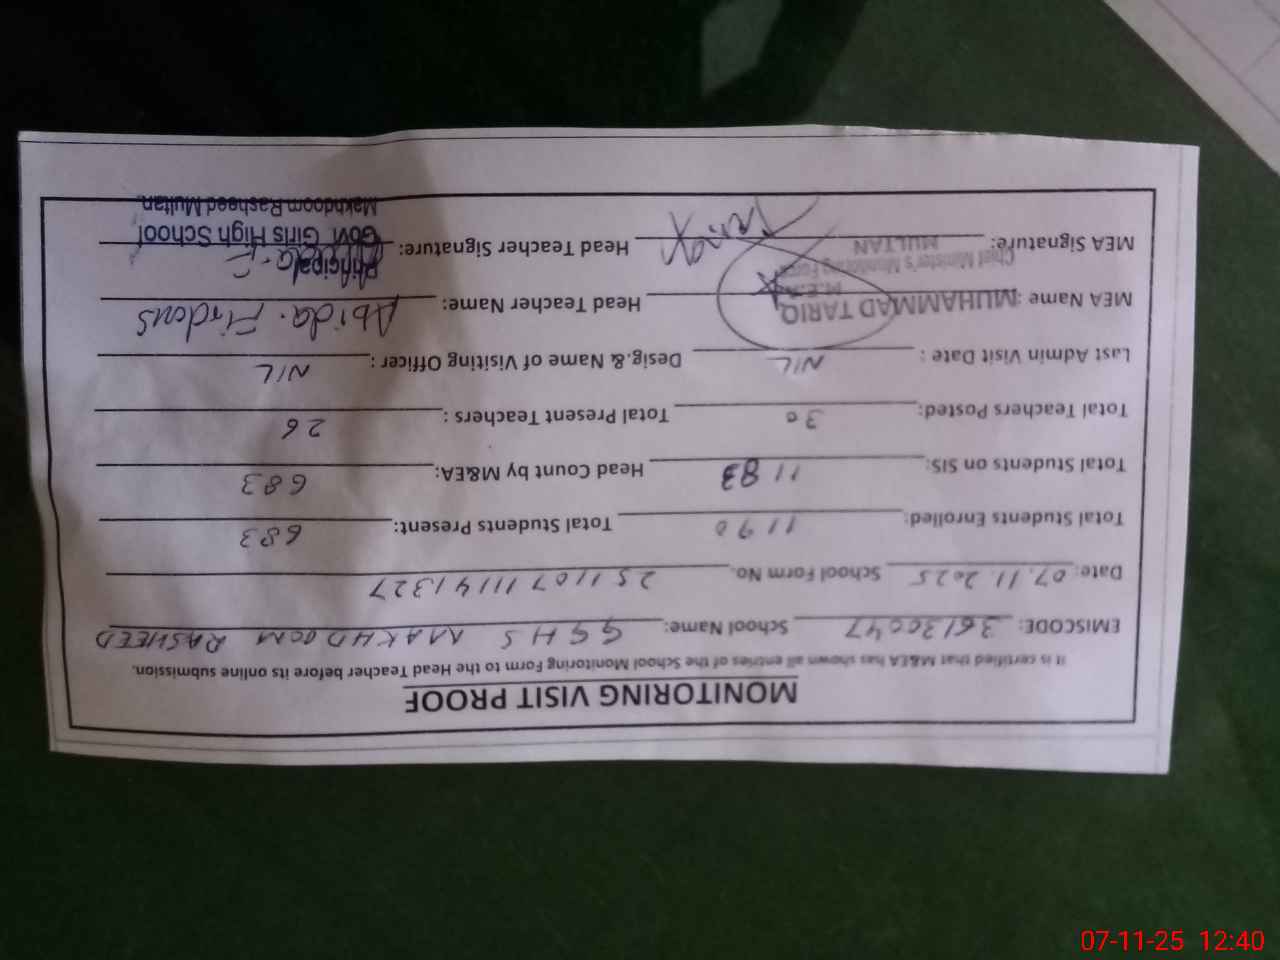 MONITORING VISIT PROOF
It is certified that M&EA has shown all entries of the School Monitoring Form to the Head Teacher before its online submission.
EMISCODE: 36130047 School Name: GGHS MAKHDOOM RASHEED
Date: 07.11.2025 School Form No. 25110711141327
Total Students Enrolled: 1190 Total Students Present: 683
Total Students on SIS: 1183 Head Count by M&EA: 683
Total Teachers Posted: 30 Total Present Teachers : 26
Last Admin Visit Date : NIL Desig.& Name of Visiting Officer : NIL
MEA Name : MUHAMMAD TARIQ Head Teacher Name: Abida. Firdous
M.E.A
Chief Minister's Monitoring Force
MULTAN
MEA Signature: Head Teacher Signature: Abida.F
Principal
Govt. Girls High School
Makhdoom Rasheed Multan.
07-11-25 12:40